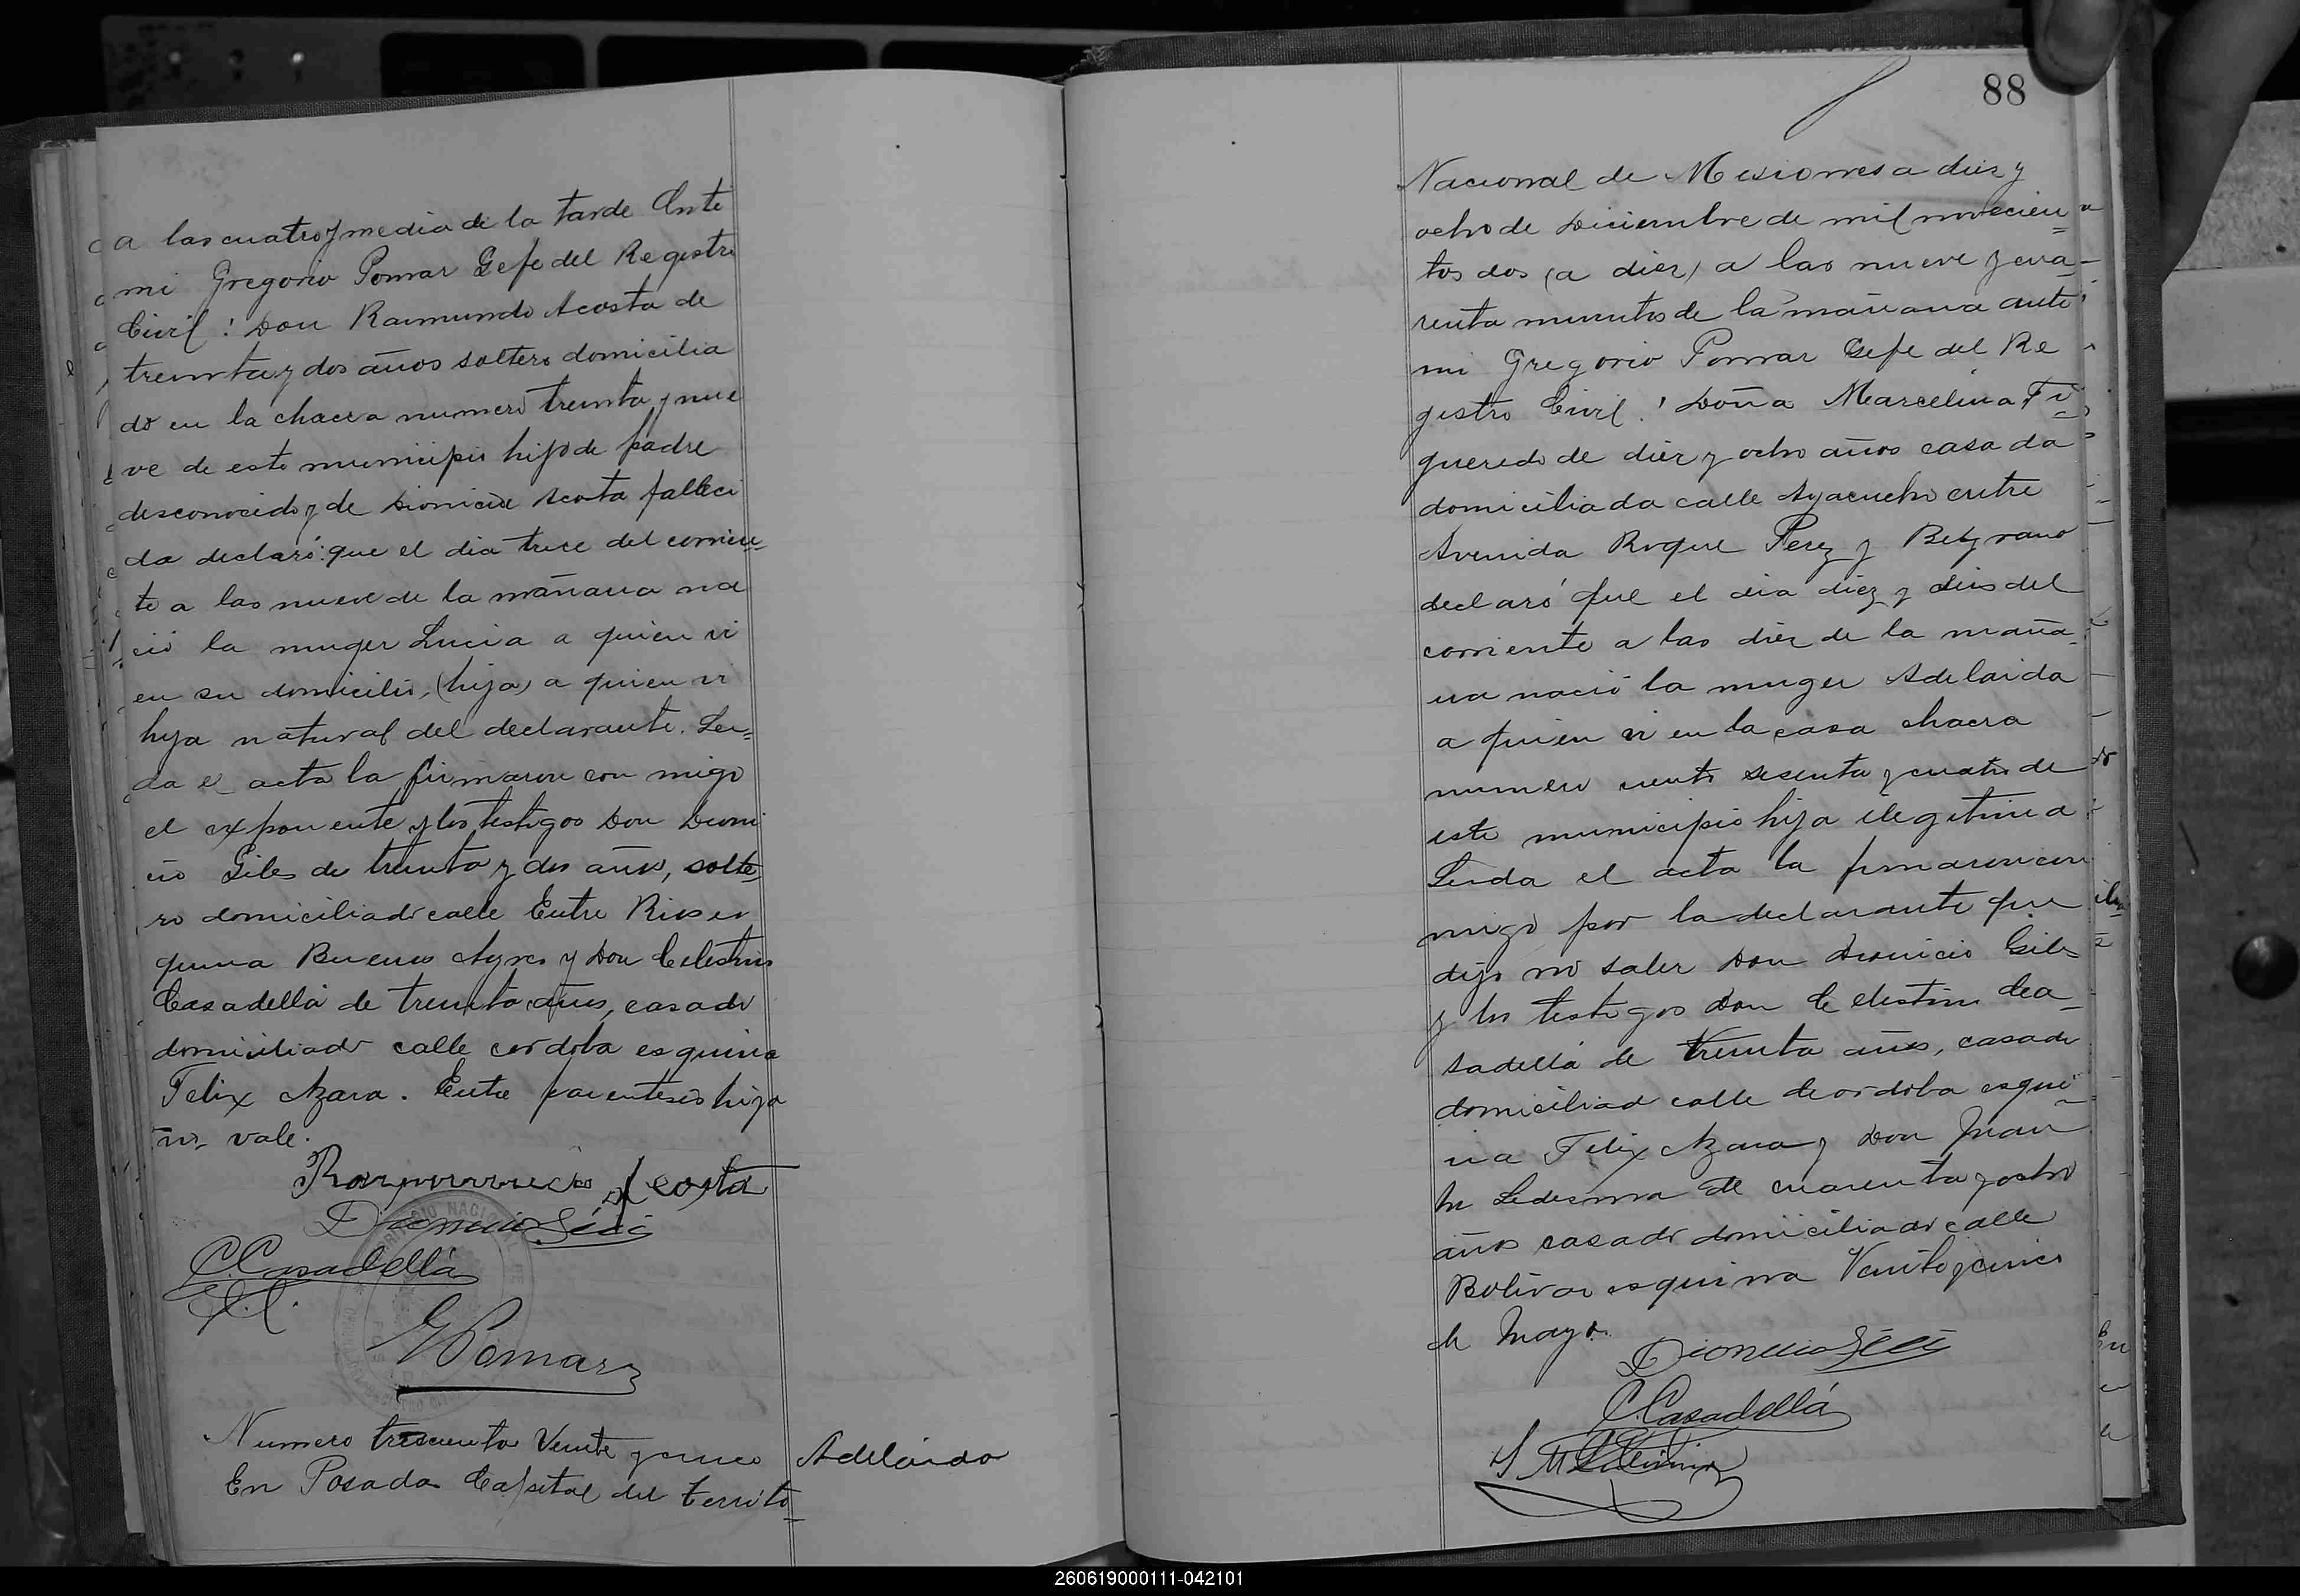 a las cuatro y media de la tarde Ante
mi Gregorio Pomar Gefe del Registro
Civil: Don Raimundo Acosta de
treinta y dos años soltero domicilia
do en la chacra numero treinta y nue
ve de este municipio hijo de padre
desconocido y de Dionicia Acosta falleci
da declaró: que el dia trece del corrien=
te a las nueve de la mañana na
ció la muger Lucia a quien vi
en su domicilio, (hija) a quien vi
hija natural del declarante. Lei=
da el acta la firmaron con migo
el exponente y los testigos Don Dioni
cio Giles de treinta y dos años, solte
ro domiciliado calle Entre Rios es
quina Buenos Ayres y Don Celestino
Casadellá de treinta años, casado
domiciliado calle cordoba esquina
Felix Azara. Entre parentesis hija
no vale.
Raymundo Acosta
Dionicio
C. Casadellá
G Pomar
Numero trescientos Veinte y cinco
Adelaida
En Posadas Capital del territo=
88
Nacional de Misiones a diez y
ocho de Diciembre de mil novecien=
tos dos (a diez) a las nueve y cua-
renta minutos de la mañana ante
mi Gregorio Pomar Gefe del Re
gistro Civil! Doña Marcelina Fi=
gueredo de diez y ocho años casada
domiciliada calle Ayacucho entre
Avenida Roque Perez y Belgrano
declaró que el dia diez y seis del
corriente a las diez de la maña=
na nació la muger Adelaida
a quien vi en la casa chacra
numero ciento sesenta y cuatro de
este municipio hija ilegitima
Leida el acta la firmaron con
migo por la declarante que
dijo no saber Don Dionicio Giles
y los testigos Don Celestino Ca=
sadellá de treinta años, casado
domiciliado calle Cordoba esqui=
na Felix Azara y Don Juan
M Ledesma de cuarenta y ocho
años casado domiciliado calle
Bolivar esquina Veinte y cinco
de Mayo.
Dionicio
C. Casadellá
260619000111-042101